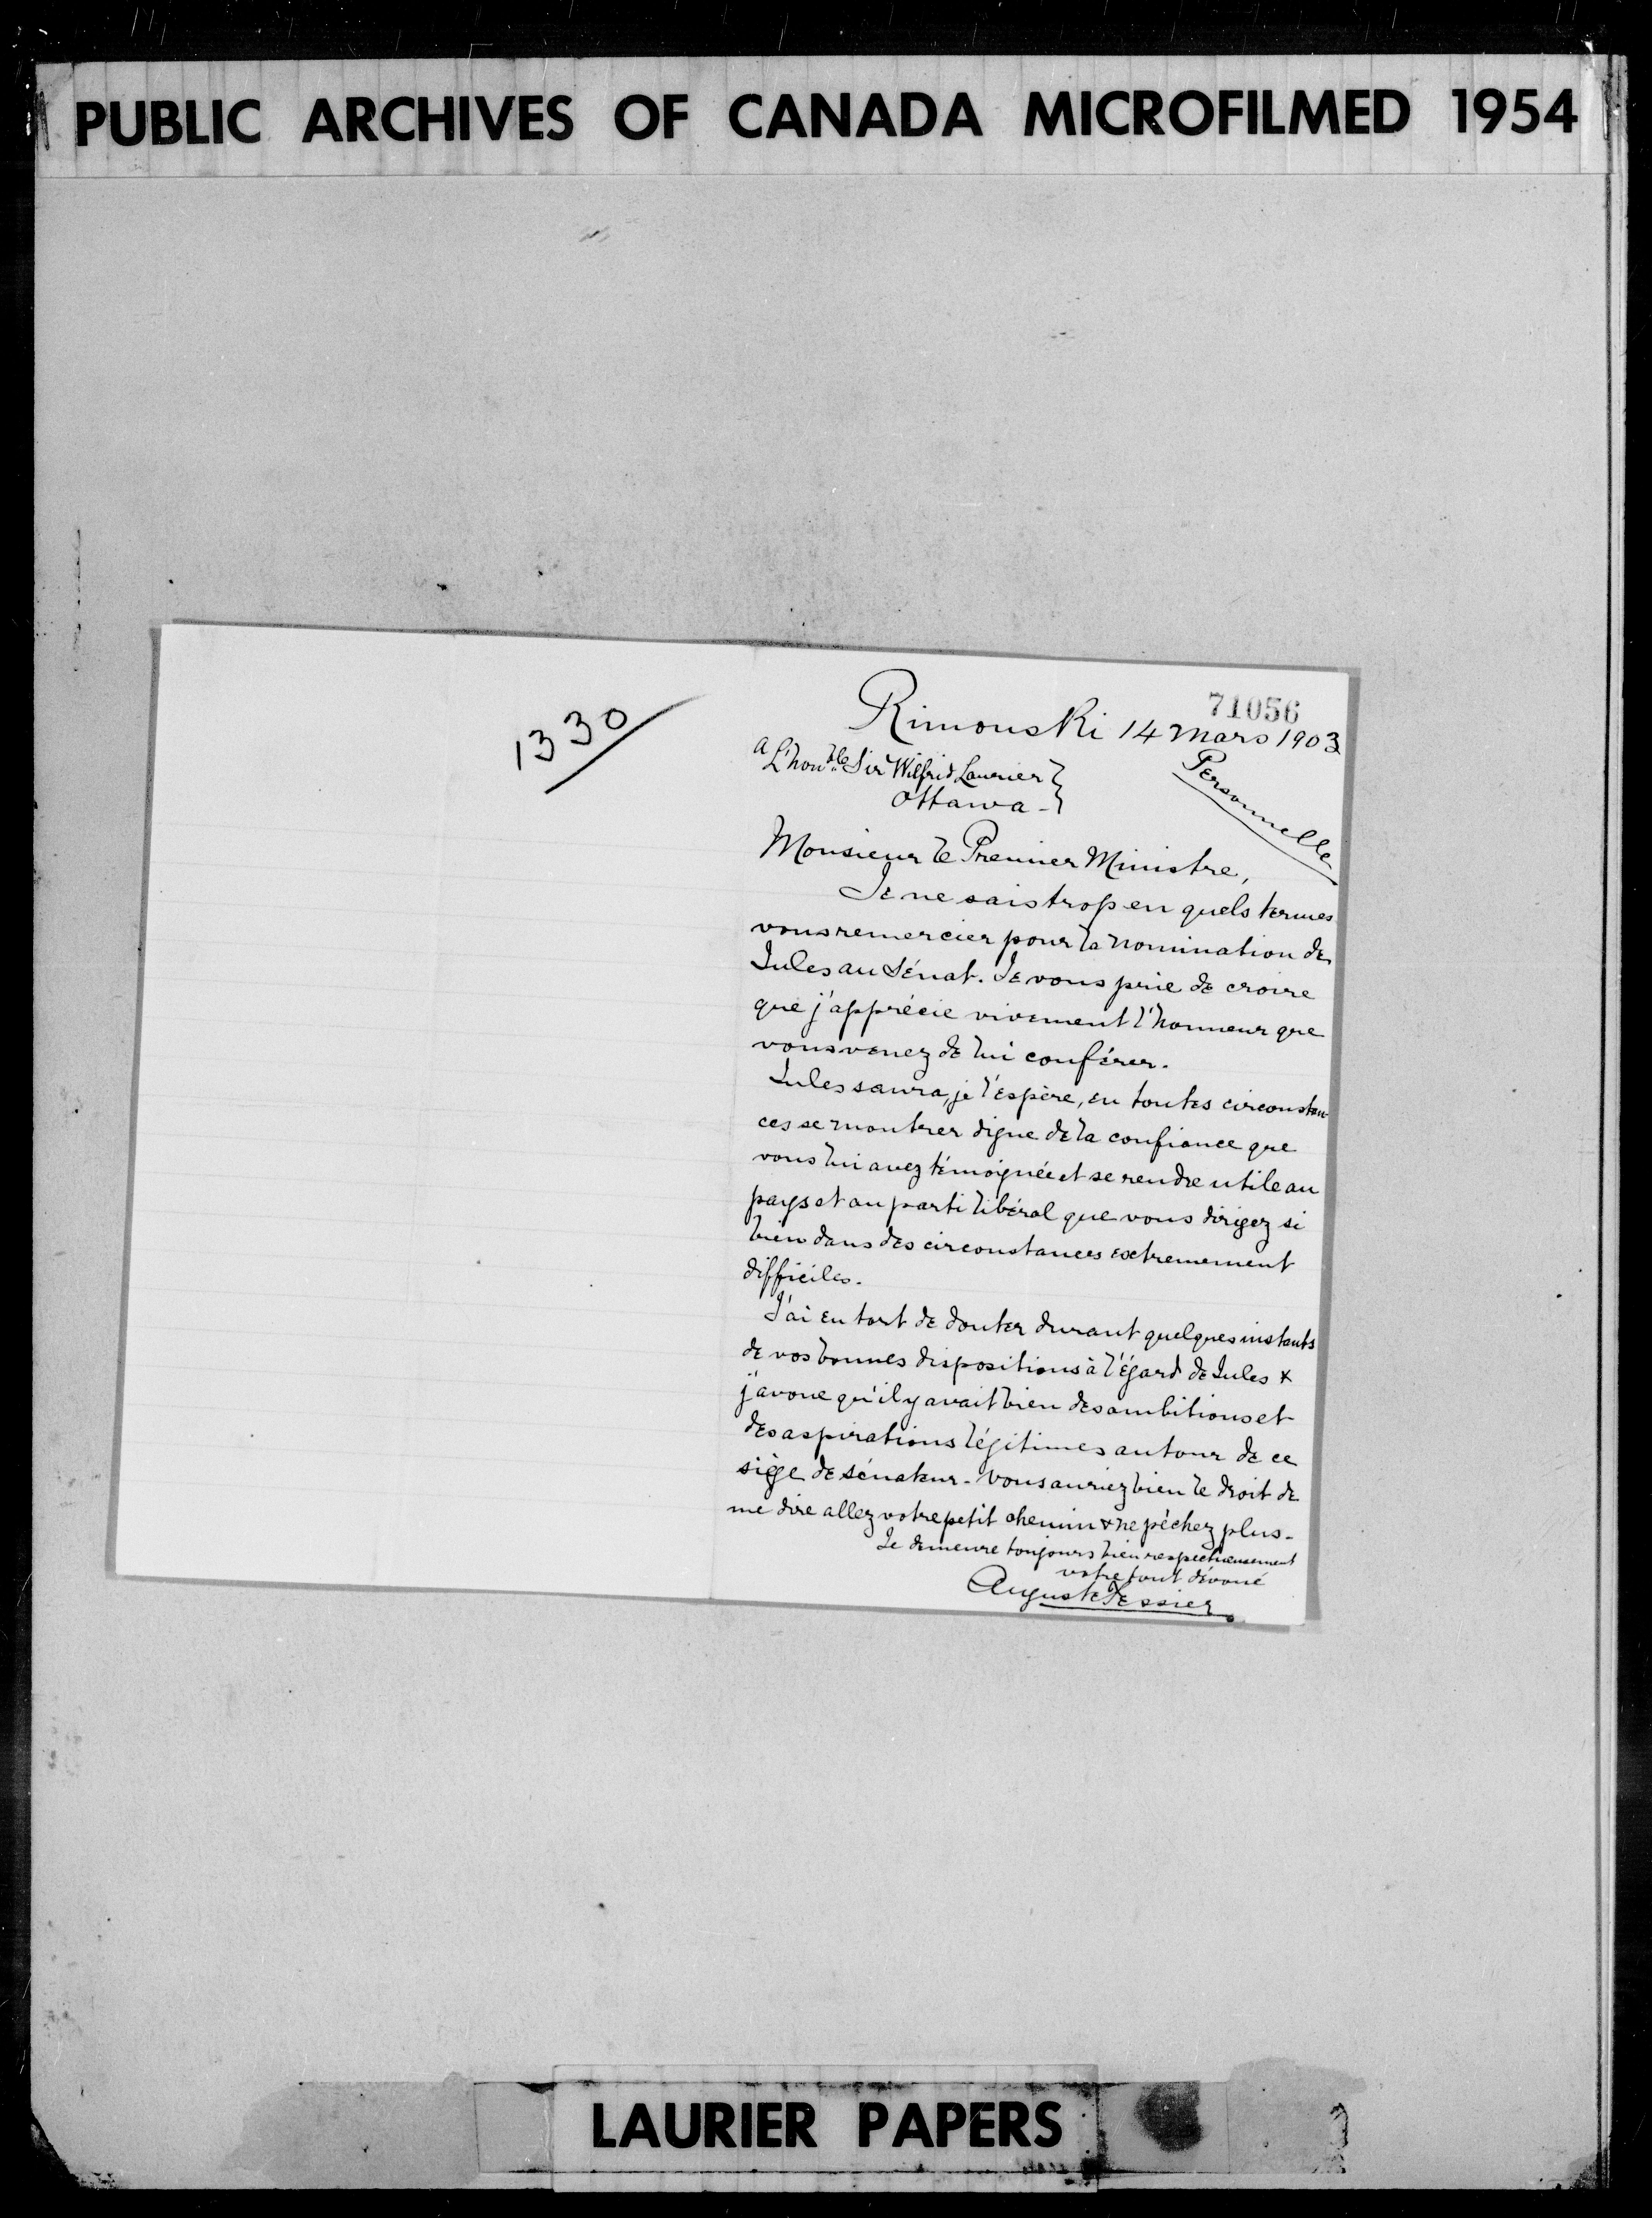 PUBLIC ARCHIVES OF CANADA MICROFILMED 1954
1330
71056
Rimouski 14 mars 1903
Personnelle
a L'hon'ble Sir Wilfrid Laurier }
Ottawa - }
Monsieur le Premier Ministre,
Je ne sais trop en quels termes
vous remercier pour la nomination de
Jules au Sénat. Je vous prie de croire
que j'apprécie vivement l'honneur que
vous venez de lui conférer.
Jules saura, je l'espère, en toutes circonstan-
ces se montrer digne de la confiance que
vous lui avez témoignée et se rendre utile au
pays et au parti libéral que vous dirigez si
bien dans des circonstances extremement
difficiles.
J'ai eu tort de douter durant quelques instants
de vos bonnes dispositions à l'égard de Jules &
j'avoue qu'il y avait bien des ambitions et
des aspirations légitimes autour de ce
siège de sénateur - Vous auriez bien le droit de
me dire allez votre petit chemin & ne péchez plus -
Je demeure toujours bien respectueusement
votre tout dévoué
Auguste Tessier
LAURIER PAPERS